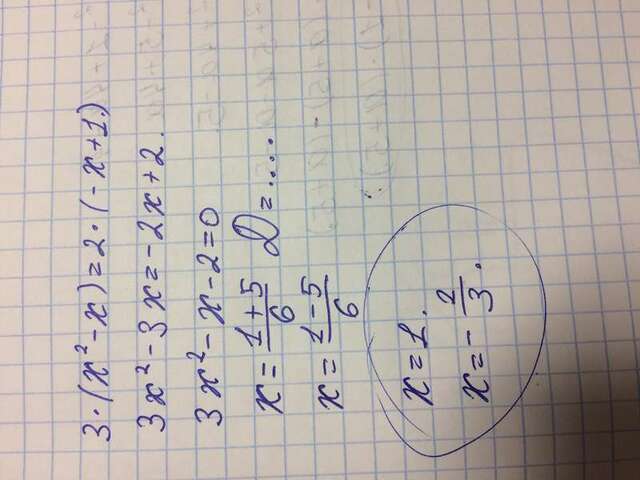 3·(x²-x)=2·(-x+1)
3x²-3x=-2x+2.
3x²-x-2=0
x=\frac{1+5}{6} D=....
x=\frac{1-5}{6}
x=1.
x=-\frac{2}{3}.